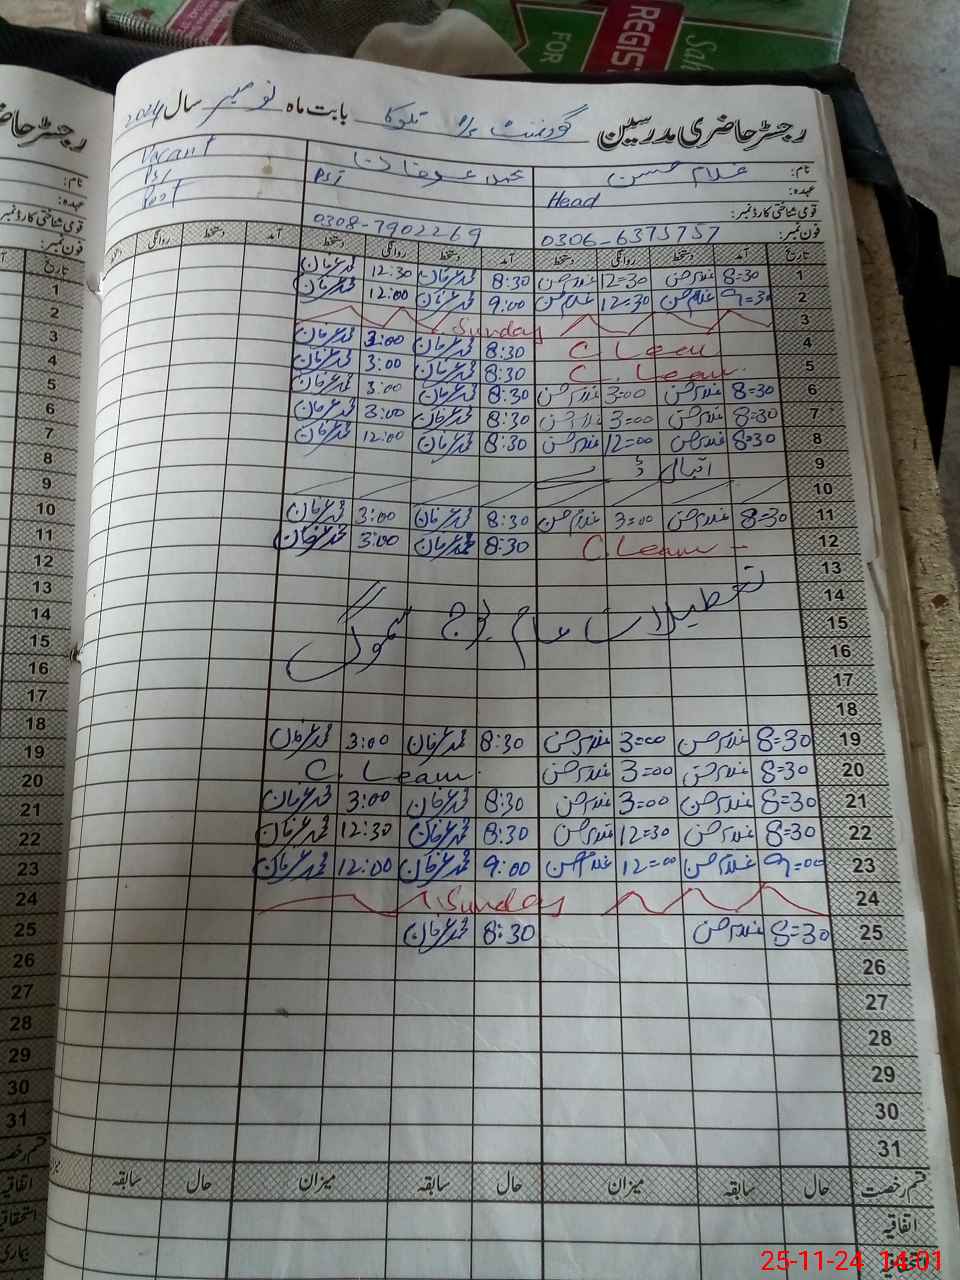 REGIST
FOR
رجسٹر حاضری مدرسین گورنمنٹ بابت ماہ نومبر سال 2024
نام: غلام حسن محمد عرفان Vacant
عہدہ: Head PST
قومی شناختی کارڈ نمبر: Post
فون نمبر: 0306-6375757 0308-7902269
تاریخ آمد دستخط روانگی دستخط آمد دستخط روانگی دستخط آمد دستخط روانگی دستخط
1 8=30 غلام حسن 12=30 غلام حسن 8:30 محمد عرفان 12:30 محمد عرفان
2 9=30 غلام حسن 12=30 غلام حسن 9:00 محمد عرفان 12:00 محمد عرفان
3 Sunday
4 C. Leav 8:30 محمد عرفان 3:00 محمد عرفان
5 C. Leav 8:30 محمد عرفان 3:00 محمد عرفان
6 8=30 غلام حسن 3=00 غلام حسن 8:30 محمد عرفان 3:00 محمد عرفان
7 8=30 غلام حسن 3=00 غلام حسن 8:30 محمد عرفان 3:00 محمد عرفان
8 8=30 غلام حسن 12=00 غلام حسن 8:30 محمد عرفان 12:00 محمد عرفان
9 اقبال ڈے
10
11 8=30 غلام حسن 3=00 غلام حسن 8:30 محمد عرفان 3:00 محمد عرفان
12 C. Leav 8:30 محمد عرفان 3:00 محمد عرفان
13
14 تعطیلات عام بوجہ سموگ
15
16
17
18
19 8=30 غلام حسن 3=00 غلام حسن 8:30 محمد عرفان 3:00 محمد عرفان
20 8=30 غلام حسن 3=00 غلام حسن C. Leav
21 8=30 غلام حسن 3=00 غلام حسن 8:30 محمد عرفان 3:00 محمد عرفان
22 8=30 غلام حسن 12=30 غلام حسن 8:30 محمد عرفان 12:30 محمد عرفان
23 9=00 غلام حسن 12=00 غلام حسن 9:00 محمد عرفان 12:00 محمد عرفان
24 Sunday
25 8=30 غلام حسن 8:30 محمد عرفان
26
27
28
29
30
31
قسم رخصت حال سابقہ میزان حال سابقہ میزان حال سابقہ
اتفاقیہ
استحقاقیہ
25-11-24 14:01